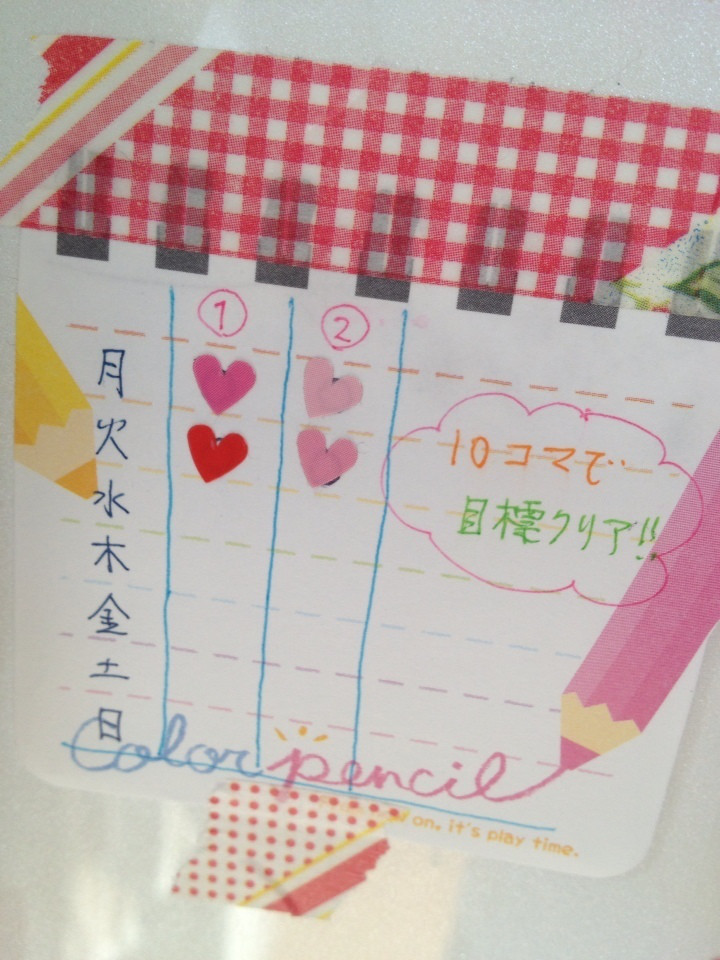 ① ②
月
火
水
木
金
土
日
10コマで
目標クリア!!
Color pencil
on, it's play time.